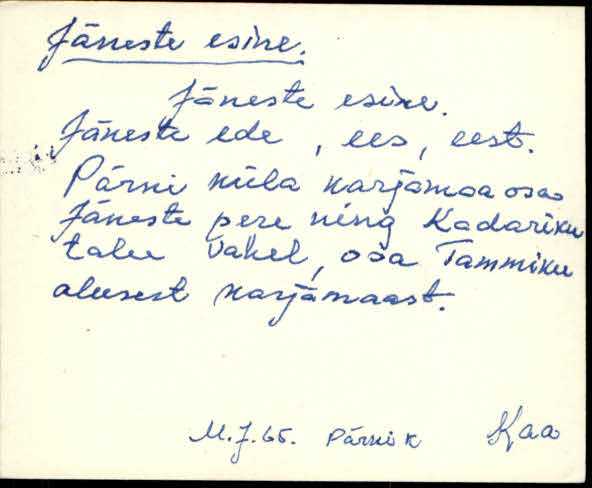 Jäneste esine.
Jäneste esine.
Jäneste ede, ees, eest.
Pärni küla karjamaa osa
Jäneste pere ning Kadariku
talu vahel, osa Tammiku
alusest karjamaast.
M.J.65. Pärni k Kaa